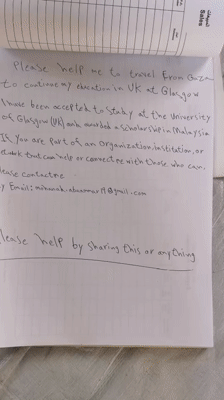 Sales
Please help me to travel From Gaza
to continue my education in UK at Glasgow
I have been accepted to study at the University
of Glasgow (UK) and awarded a scholarship in Malaysia
If you are part of an organization, institution, or
network that can help or connect me with those who can.
lease contact me
y Email:
lease help by sharing this or anything